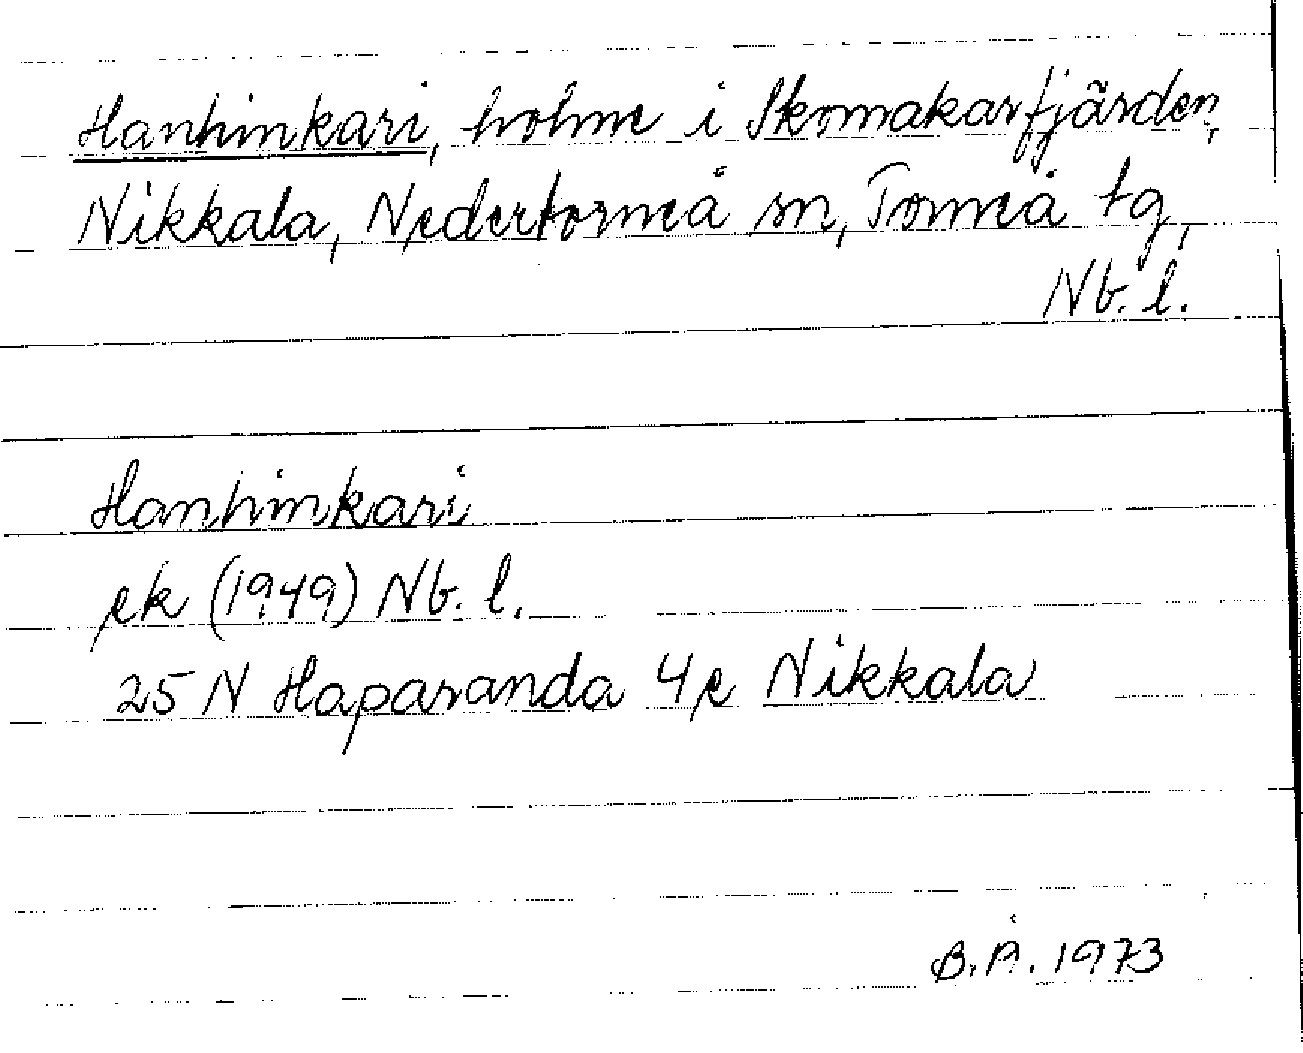 Hanhinkari, holme i Skomakarfjärden,
Nikkala, Nedertorneå sn, Torneå tg,
Nb. l.
Hanhinkari
ek (1949) Nb. l.
25 N Haparanda 4e Nikkala
B.Å. 1973